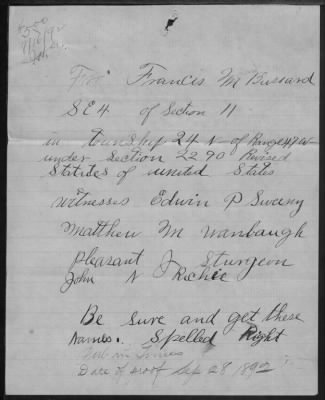 For Francis M Bussard
SE4 of Section 11
in township 24 N of Range 47 W
under Section 2290 Revised
Statutes of united States
witnesses Edwin P Sweeny
Matthew M Wanbaugh
Pleasant J Sturgeon
John N Richie
Be sure and get these
Names. Spelled Right
Pub in Times
Date of proof Sep 28 1892